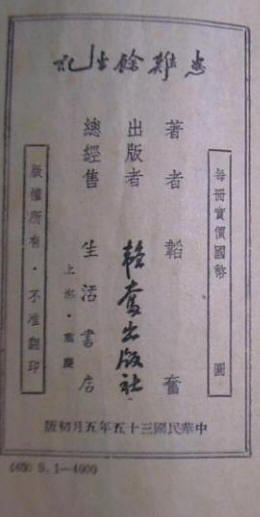 患難餘生記
每冊實價國幣 圓
著者 韜奮
出版者 韜奮出版社
總經售 生活書店
上海・重慶
版權所有・不准翻印
中華民國三十五年五月初版
(469) S.1—4000